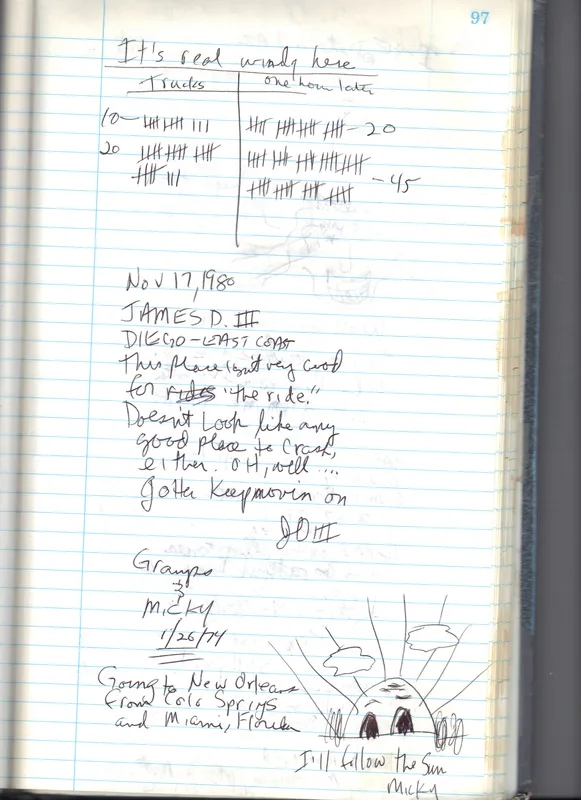 97
It's real windy here
Trucks
one hour later
10 -
20
- 20
- 45
Nov 17, 1980
JAMES D. III
DIEGO - EAST COAST
This place isn't very good
for rides "the ride."
Doesn't Look like any
good place to crash,
either. OH, well ....
Gotta Keep movin on
JD III
Gramps
&
Micky
1/26/74
Going to New Orleans
from Colo Springs
and Miami, Florida
I'll follow the Sun
Micky